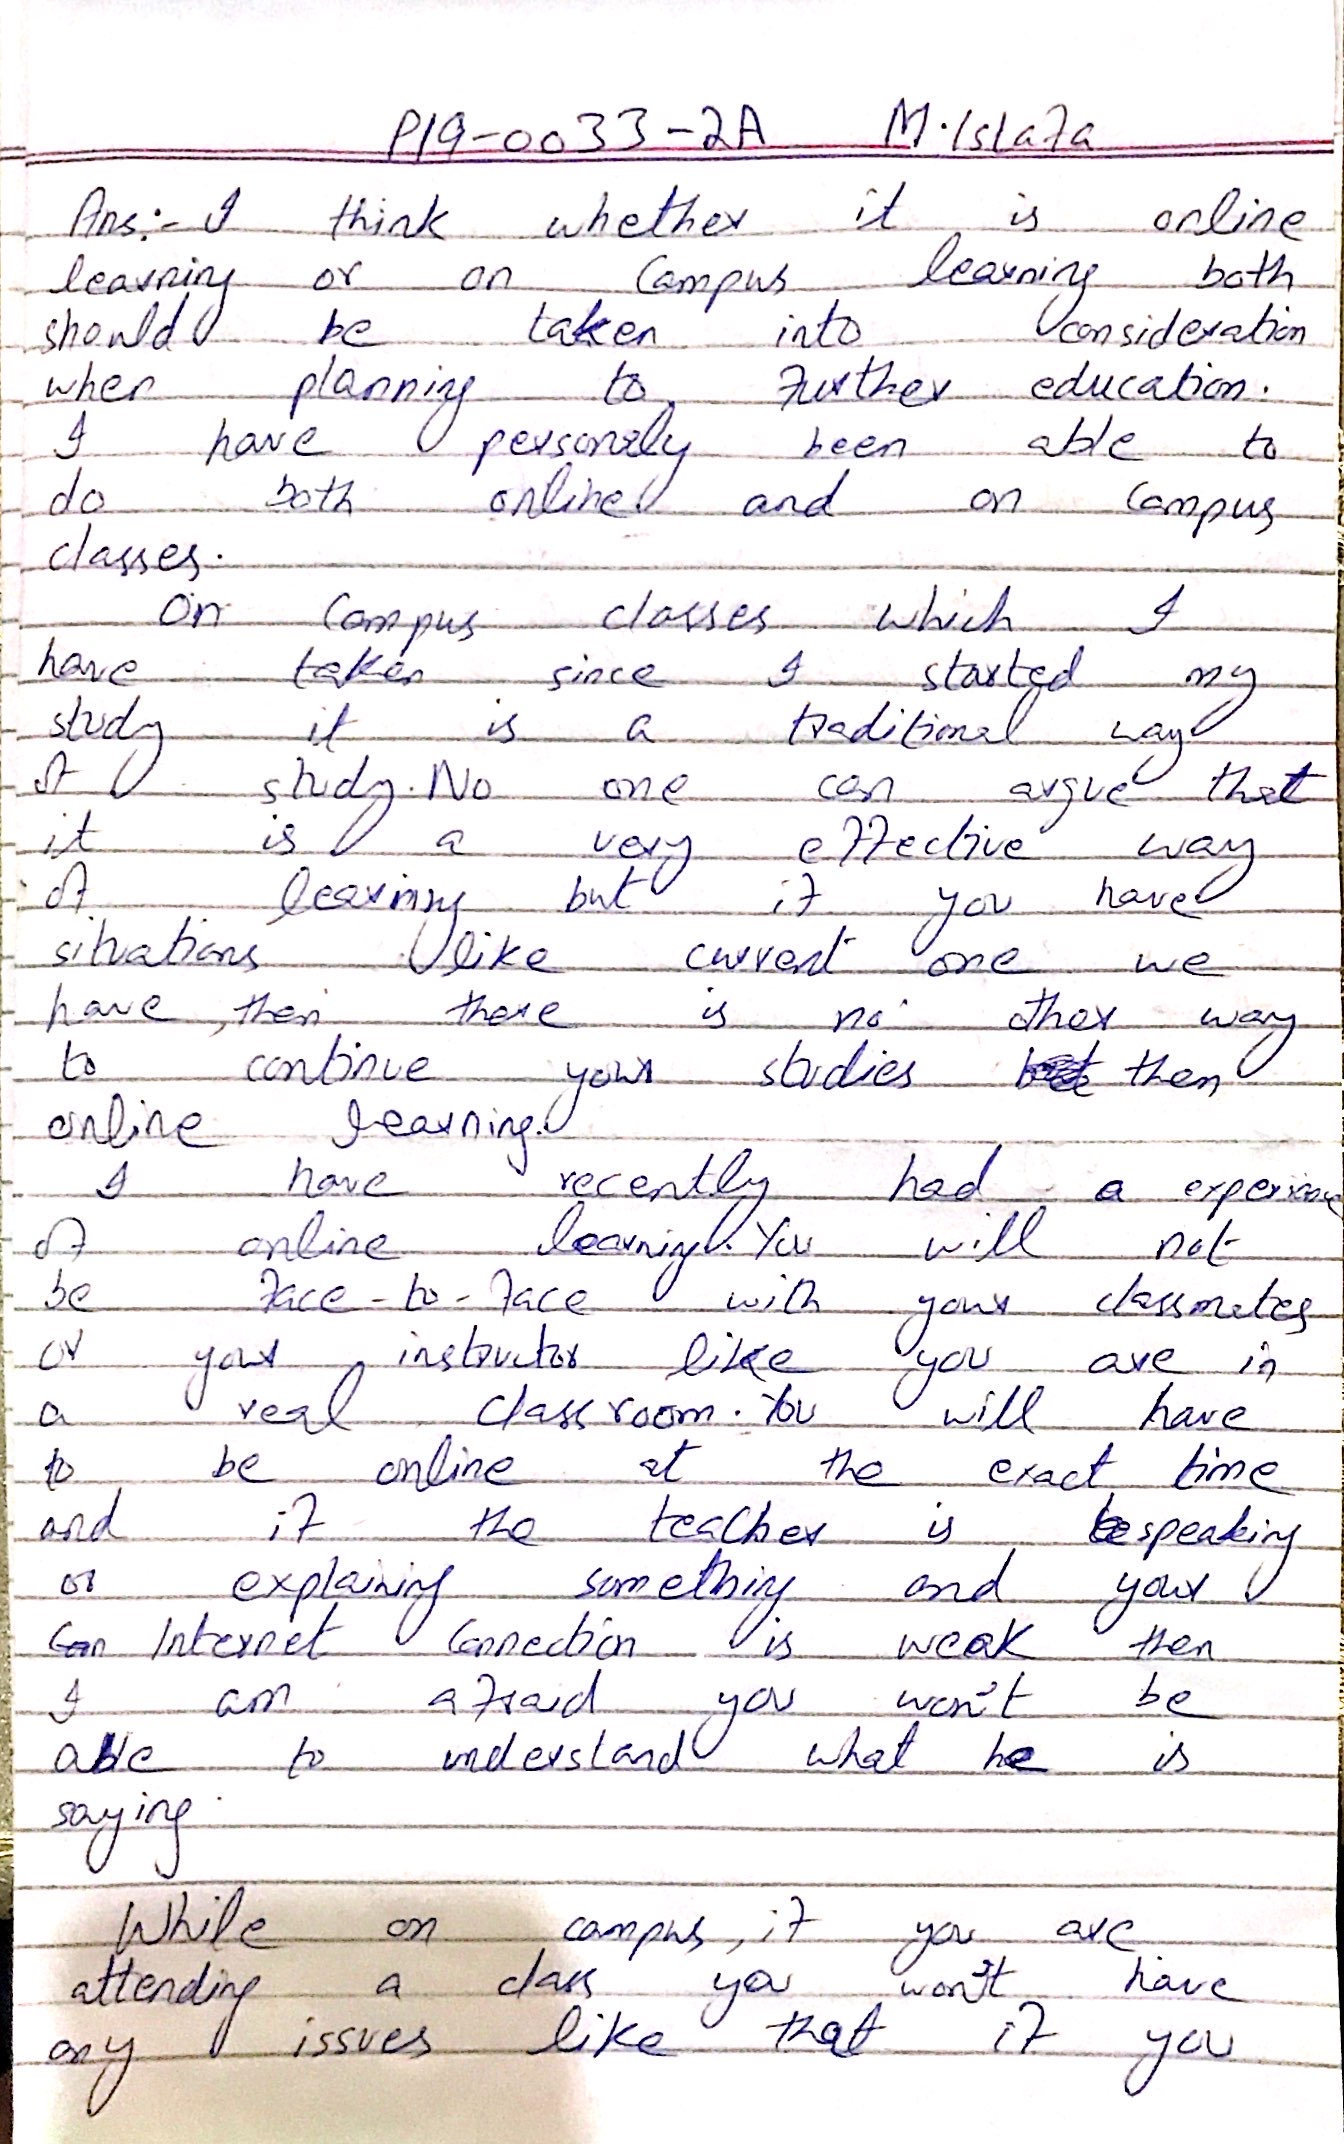 P19-0033-2A M.Islafa
Ans:- I think whether it is online
learning or on Campus learning both
should be taken into consideration
when planning to further education.
I have personaly been able to
do both online and on Campus
classes.
On Campus classes which I
have taken since I started my
study it is a traditional way
of study. No one can argue that
it is a very effective way
of learning but if you have
situations like current one we
have, then there is no other way
to continue your studies then
online learning.
I have recently had a experience
of online learning. You will not
be face-to-face with your classmates
or your instructor like you are in
a real classroom. You will have
to be online at the exact time
and if the teacher is speaking
or explaining something and your
Con Internet Connection is weak then
I am afraid you won't be
able to understand what he is
saying.
While on campus, if you are
attending a class you won't have
any issues like that if you